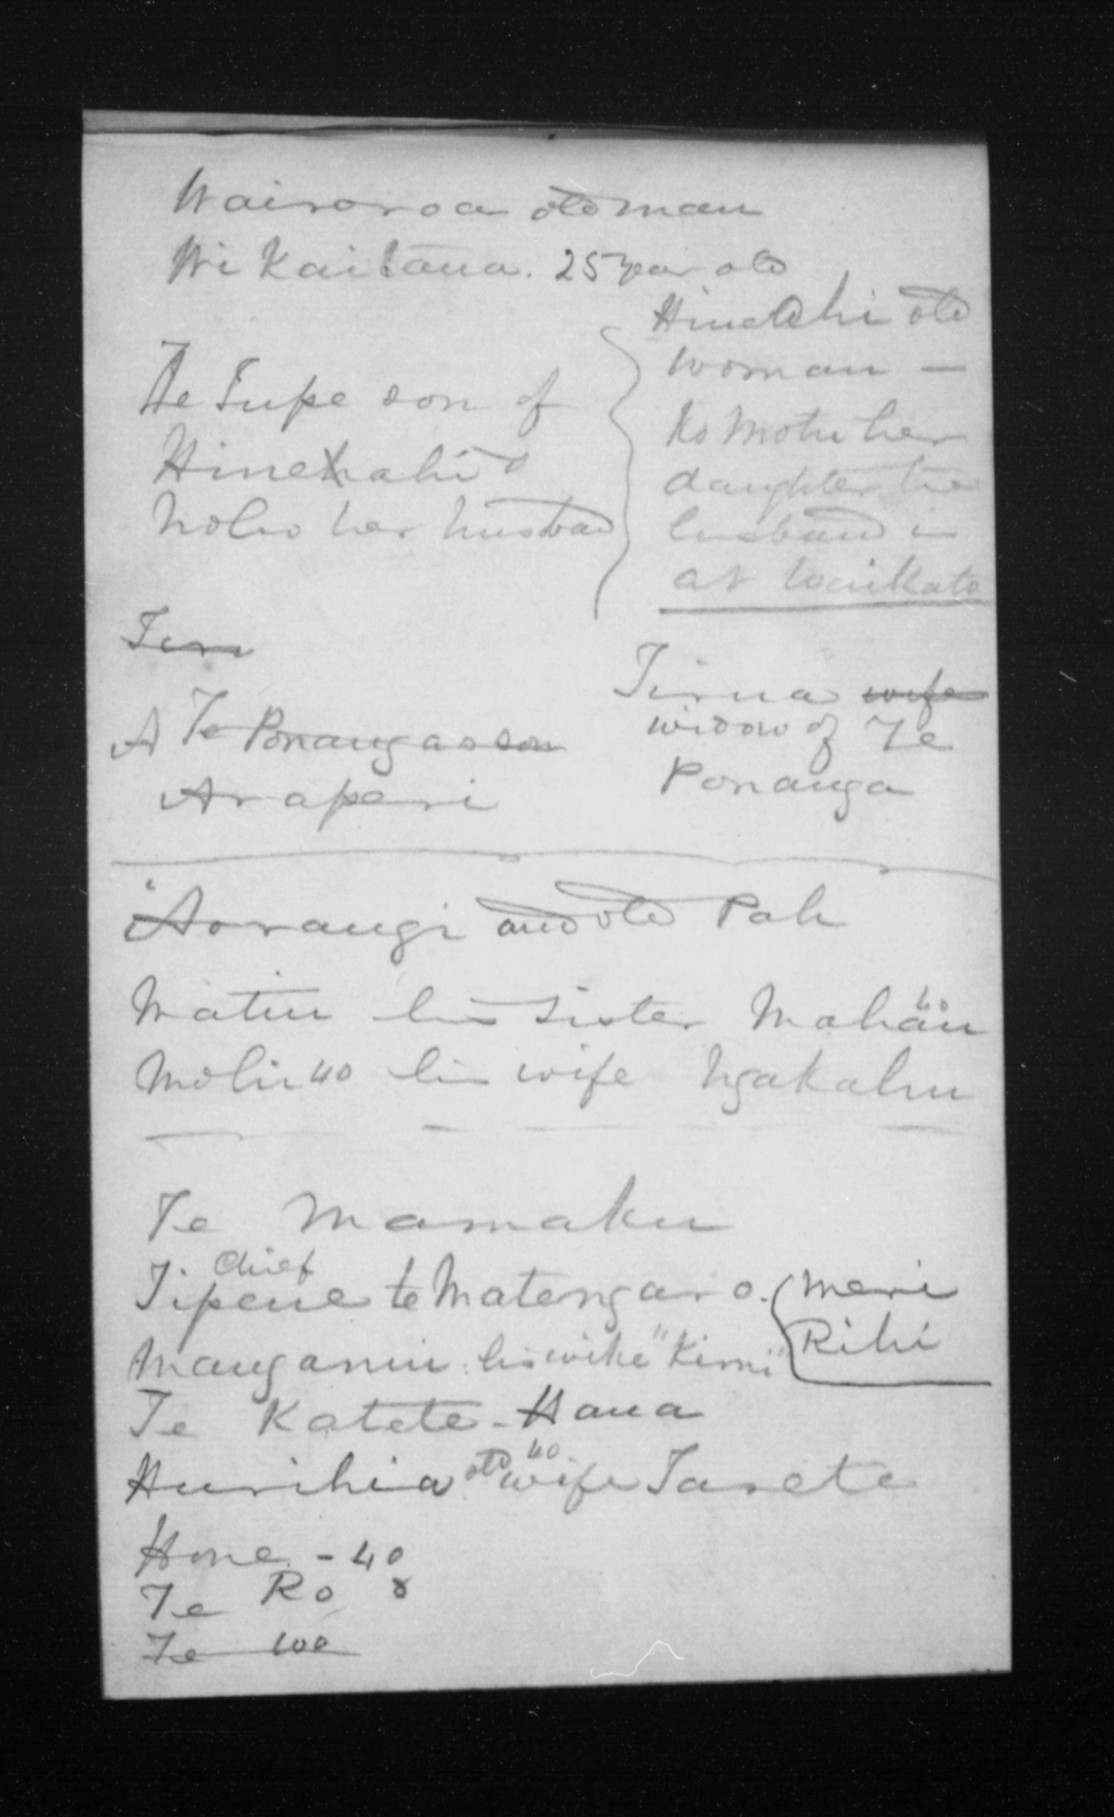 Wairoroa old man
Wi Kaitana. 25 year old
Te Tupe son of
Hinekahi &
Noho her husband
Hineahi old
woman —
Ko Motu her
daughter her
husband is
at Waikato
Teru
A Te Ponanga son
Araperi
Tirua wife
widow of Te
Ponanga
Aorangi and old Pah
Matiu his sister Mahau 40
Mohi 40 his wife Ngakahu
Te Mamaku
chief
Tipene te Matengaro. Meri
Rihi
Manganui his wike "Kimi"
Te Katete - Hana
Hurihia old wife 40 Tarete
Hone - 40
Te Ro 8
Te wo